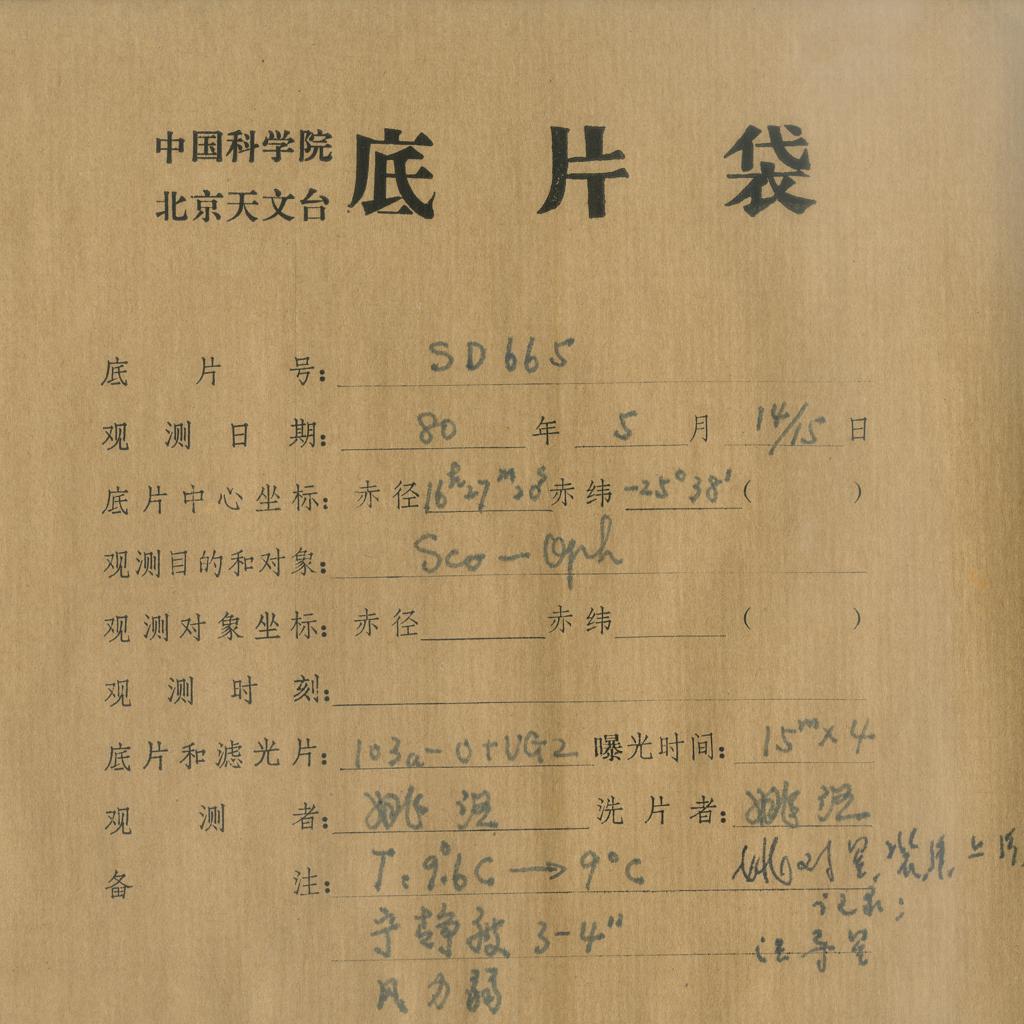 中国科学院
北京天文台
底片袋
底片号: SD665
观测日期: 80年5月14/15日
底片中心坐标: 赤径16h27m28s赤纬-25°38′( )
观测目的和对象: Sco-Oph
观测对象坐标: 赤径 赤纬 ( )
观测时刻:
底片和滤光片: 103a-O+UG2 曝光时间: 15m×4
观测者: 姚 洗片者: 姚
备注: T: 9.°6C → 9°C 姚 对星,装底,
记录;
宁静度 3-4" 导星
风力弱